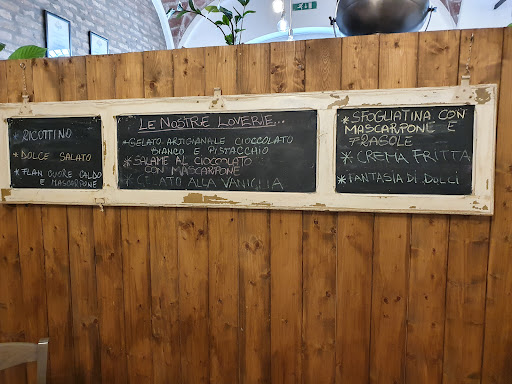 * RICOTTINO
* DOLCE SALATO
* FLAN CUORE CALDO
E MASCARPONE
LE NOSTRE LOVERIE...
*GELATO ARTIGIANALE CIOCCOLATO
BIANCO E PISTACCHIO
* SALAME AL CIOCCOLATO
CON MASCARPONE
* GELATO ALLA VANIGLIA
* SFOGLIATINA CON
MASCARPONE E
FRAGOLE
* CREMA FRITTA
* FANTASIA DI DOLCI